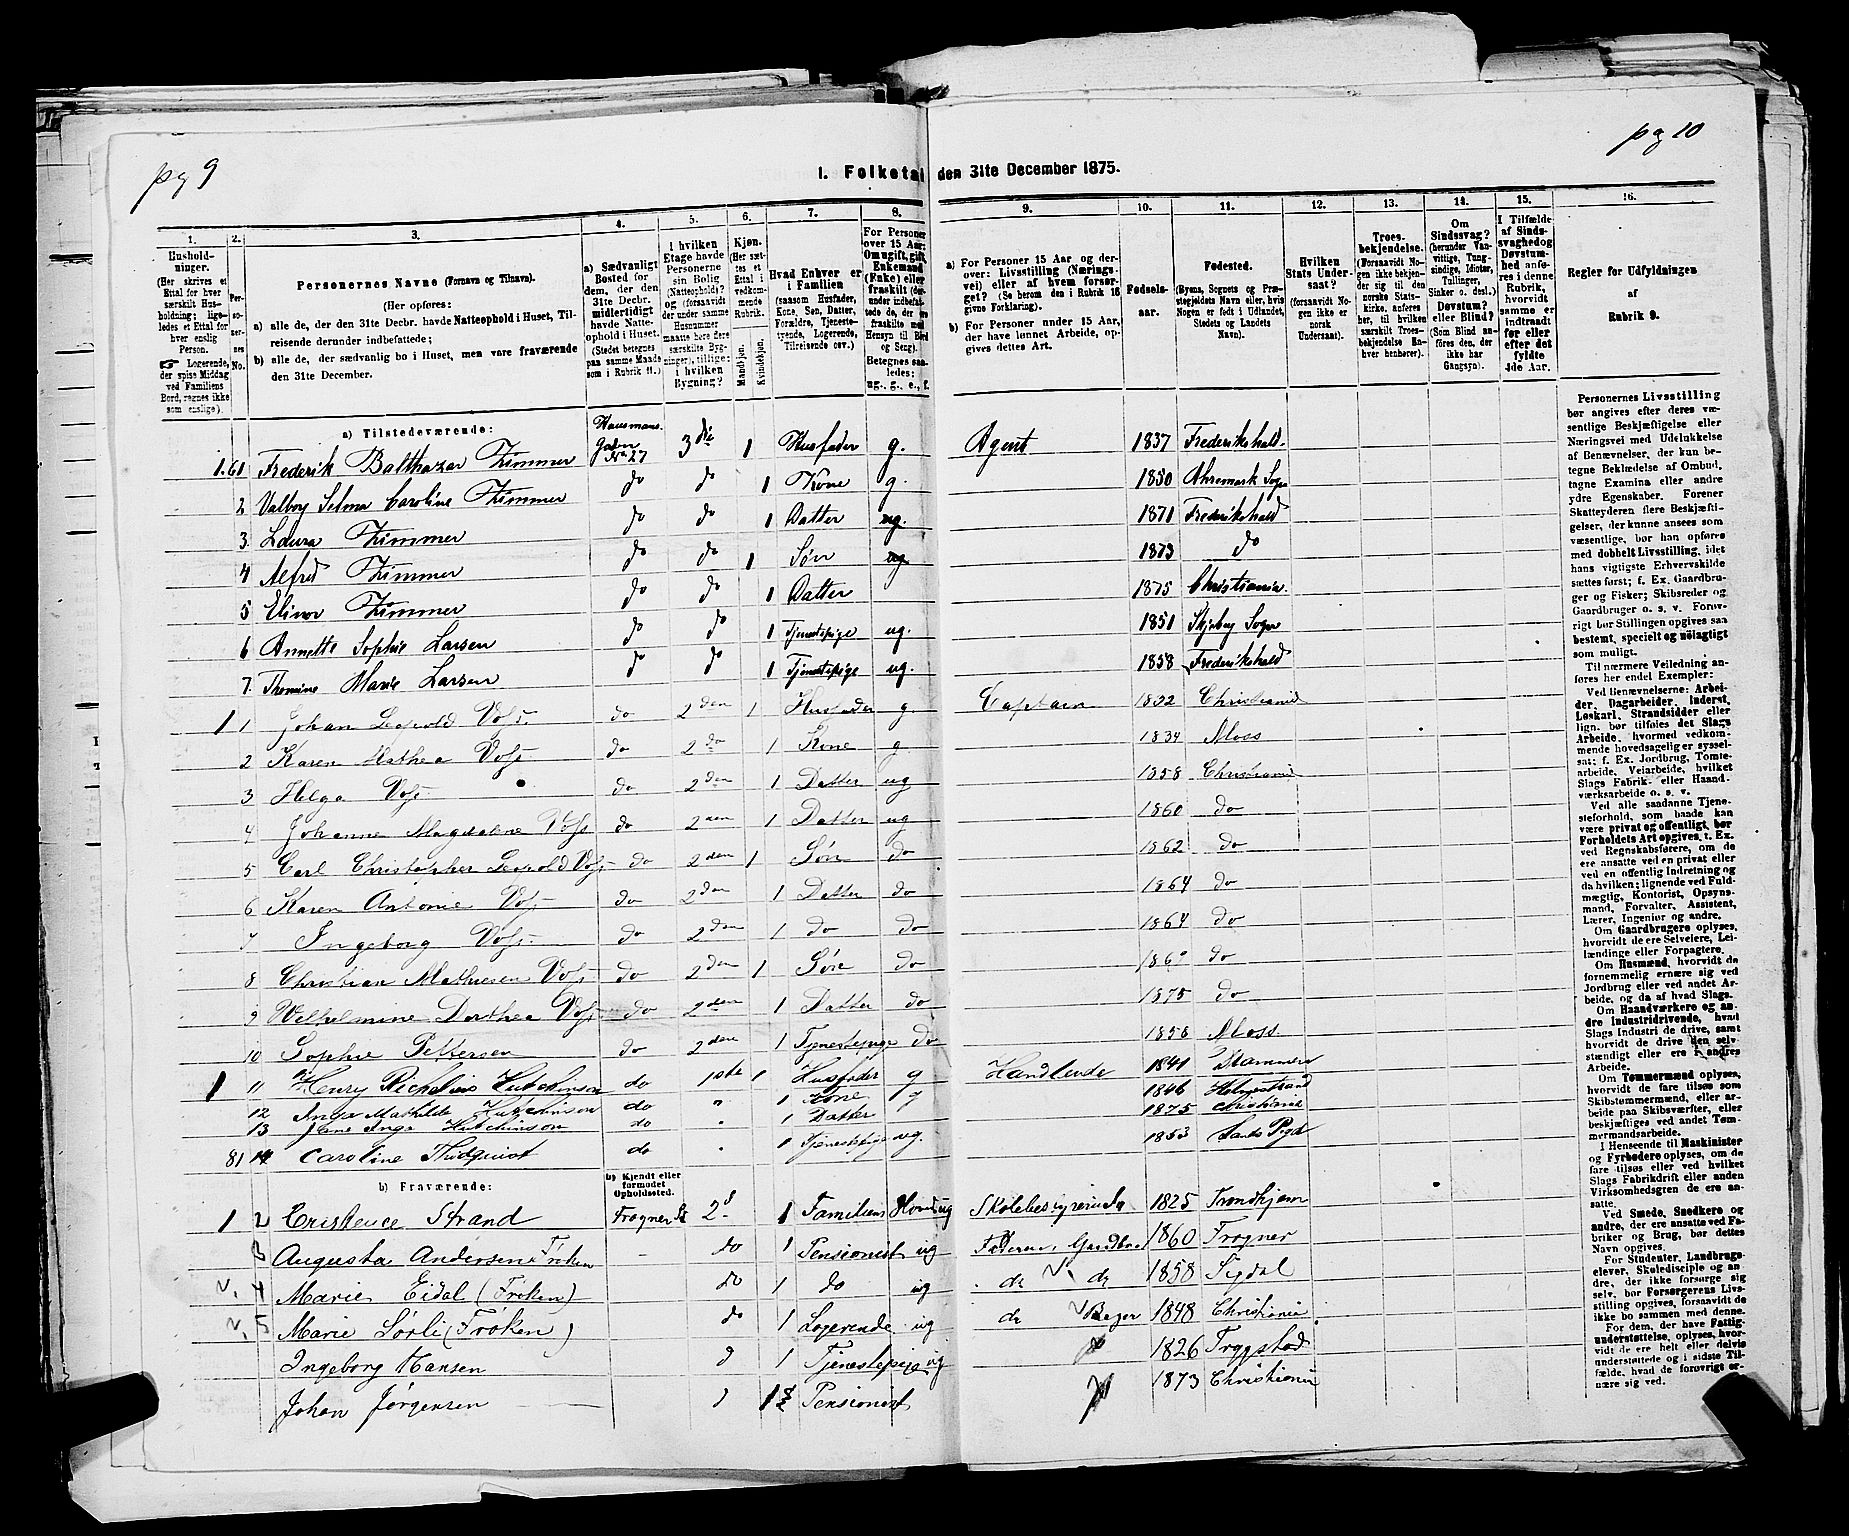 pg 9
pg 10
1. Folketal den 31te December 1875.
1. 2. 3. 4. 5. 6. 7. 8. 9. 10. 11. 12. 13. 14. 15. 16.
Husholdninger. (Her skrives et Ettal for hver særskilt Husholdning; ligeledes et Ettal for hver enslig Person. Logerende, der spise Middag ved Familiens Bord, regnes ikke som enslige).
Personernes No.
Personernes Navne (Fornavn og Tilnavn).
(Her opføres:
a) alle de, der den 31te Decbr. havde Natteophold i Huset, Tilreisende derunder indbefattede;
b) alle de, der sædvanlig bo i Huset, men vare fraværende den 31te December.
a) Sædvanligt Bosted for dem, der den 31te Decbr. midlertidigt havde Natteophold i Huset. (Stedet betegnes paa samme Maade som i Rubrik 11.)
I hvilken Etage havde Personerne sin Bolig (Natteophold)? og (forsaavidt der under samme Husnummer maatte høre flere særskilte Bygninger), tillige: i hvilken Bygning?
Kjøn. (Her sættes et Ettal i vedkommende Rubrik. Mandkjøn. Kvindekjøn.
Hvad Enhver er i Familien (saasom Husfader, Kone, Søn, Datter, Forældre, Tjenestetyende, Logerende, Tilreisende osv.).
For Personer over 15 Aar: Om ugift, gift, Enkemand (Enke) eller fraskilt (derunder indbefattede de, der ere fraskilte med Hensyn til Bord og Seng). Betegnes saaledes: ug., g., e., f.
a) For Personer 15 Aar og derover: Livsstilling (Næringsvei) eller af hvem forsørget? (Se herom den i Rubrik 16 givne Forklaring).
b) For Personer under 15 Aar, der have lønnet Arbeide, opgives dettes Art.
Fødselsaar.
Fødested. (Byens, Sognets og Præstegjeldets Navn eller, hvis Nogen er født i Udlandet, Stedets og Landets Navn).
Hvilken Stats Undersaat? (forsaavidt Nogen ikke er norsk Undersaat).
Troesbekjendelse. (Forsaavidt Nogen ikke bekjender sig til den norske Statskirke, anføres her, til hvilken særskilt Troesbekjendelse Enhver henhører).
Om Sindssvag? (herunder Vanvittige, Tungsindige, Idioter, Tullinger, Sinker o. desl.) Døvstum? eller Blind? (Som Blind anføres den, der ikke har Gangsyn).
I Tilfælde af Sindssvaghed og Døvstumhed anføres i denne Rubrik, hvorvidt samme er indtraadt før eller efter det fyldte 4de Aar.
Regler for Udfyldningen af Rubrik 9.
a) Tilstedeværende:
Hausmans
1. 61 Frederik Balthazar Zimmer Gaden No 27 3die 1 Husfader g. Agent 1837 Frederikshald.
2 Valborg Selma Caroline Zimmer do do 1 Kone g. 1850 Ahremark Sogn
3. Laura Zimmer do do 1 Datter ug. 1871 Frederikshald
4 Alfred Zimmer do do 1 Søn ug 1873 do
5 Elinor Zimmer do do 1 Datter 1875 Christiania.
6 Annette Sophie Larsen do do 1 Tjenestepige ug. 1851 Skjeberg Sogn
7. Thomine Marie Larsen do do 1 Tjenestepige ug. 1858 Frederikshald
1 1 Johan Leopold Voss do 2den 1 Husfader g. Captain 1832 Christiania
2 Karen Mathea Voss do 2do 1 Kone g 1834 Moss
3 Helga Voss do 2den 1 Datter ug 1858 Christiania
4 Johanne Magdalene Voss do 2den 1 Datter ug 1860 do
5 Carl Christopher Leopold Voss do 2den 1 Søn do 1862 do
6 Karen Antonie Voss do 2den 1 Datter do 1864 do
7 Ingeborg Voss do 2den 1 do do 1864 do
8 Christian Mathiesen Voss do 2den 1 Søn do do
9 Wilhelmine Dorthea Voss do 2den 1 Datter do 1875 do
10 Sophie Pettersen do 2den 1 Tjenestepige do 1858 Moss
1 11 Henry Richelius Hutchinson do 1ste 1 Husfader g Handlende 1841 Stammen
12 Inga Mathilde Hutchinson do " 1 Kone g 1846 Holmestrand
13 Jane Inga Hutchinson do " 1 Datter 1875 Christiania
81 14 Caroline Thidquist do " 1 Tjenestepige ug. 1853
b) Fraværende:
b) Kjendt eller formodet Opholdssted.
1 2 Cristence Strand Frogner 2d 1 Familiens Hoved ug Skolebestyrerinde 1825 Trondhjem
3 Augusta Andersen Frøken - do 1 Pensionist ug 1860 Frogner
v. 4 Marie Eidal (Frøken) do 1 do ug do do 1858 Sigdal
v. 5 Marie Sørli (Frøken) do 1 Logerende ug do Bager 1848 Christiania
Ingeborg Hansen d 1 Tjenestepige ug 1826 Trygstad
Johan Jørgensen d 1 Pensionist 1873 Christiania
Personernes Livsstilling
bør angives efter deres væsentlige Beskjæftigelse eller
Næringsvei med Udelukkelse
af Benævnelser, der kun betegne Beklædelse af Ombud,
tagne Examina eller andre
ydre Egenskaber. Forener
Skatteyderen flere Beskjæftigelser, der kunne ansees som
væsentlige, bør han opføres
med dobbelt Livsstilling, idet
hans vigtigste Erhvervskilde
sættes først; f. Ex. Gaardbruger og Fisker; Skibsreder og
Gaardbruger o. s. v. Forøvrigt bør Stillingen opgives saa
bestemt, specielt og nøiagtigt
som muligt.
Til nærmere Veiledning anføres her endel Exempler:
Ved Benævnelserne: Arbeider, Dagarbeider, Inderst,
Løskarl, Strandsidder eller
lign. bør tilføies det Slags
Arbeide, hvormed vedkommende hovedsagelig er sysselsat; f. Ex. Jordbrug, Tomtearbeide, Veiarbeide, hvilket
Slags Fabrik- eller Haandværksarbeide o. s. v.
Ved alle saadanne Tjenesteforhold, som baade kan
være privat og offentligt, bør
Forholdets Art opgives, t. Ex.
ved Regnskabsførere, om de
ere ansatte ved en privat eller
ved en offentlig Indretning og
da hvilken; lignende ved Fuldmægtig, Kontorist, Opsynsmand, Forvalter, Assistent,
Lærer, Ingeniør og andre.
Om Gaardbrugere oplyses,
hvorvidt de ere Selveiere, Leilændinge eller Forpagtere.
Om Husmænd, hvorvidt de
fornemmelig ernære sig ved
Jordbrug eller ved andet Arbeide, og da af hvad Slags.
Om Haandværkere og andre Industridrivende, hvad
Slags Industri de drive, samt
hvorvidt de drive den selvstændigt eller ere i andres
Arbeide.
Om Tømmermænd oplyses,
hvorvidt de fare tilsøs som
Skibstømmermænd, eller arbeide paa Skibsværfter, eller
beskjæftiges ved andet Tømmermandsarbeide.
I Henseende til Maskinister
og Fyrbødere oplyses, om de
fare tilsøs eller ved hvilket
Slags Fabrikdrift eller anden
Virksomhedsgren de ere ansatte.
Ved Smede, Snedkere og
andre, der ere ansatte ved Fabriker og Brug, bør dettes
Navn opgives.
For Studenter, Landbrugselever, Skoledisciple og andre, der ikke forsørge sig
selv, bør Forsørgerens Livsstilling opgives, forsaavidt de
ikke bo sammen med denne.
For dem, der have Fattigunderstøttelse, oplyses, hvorvidt de ere helt eller delvis
understøttede og i sidste Tilfælde, hvad de forøvrigt ernære sig ved.